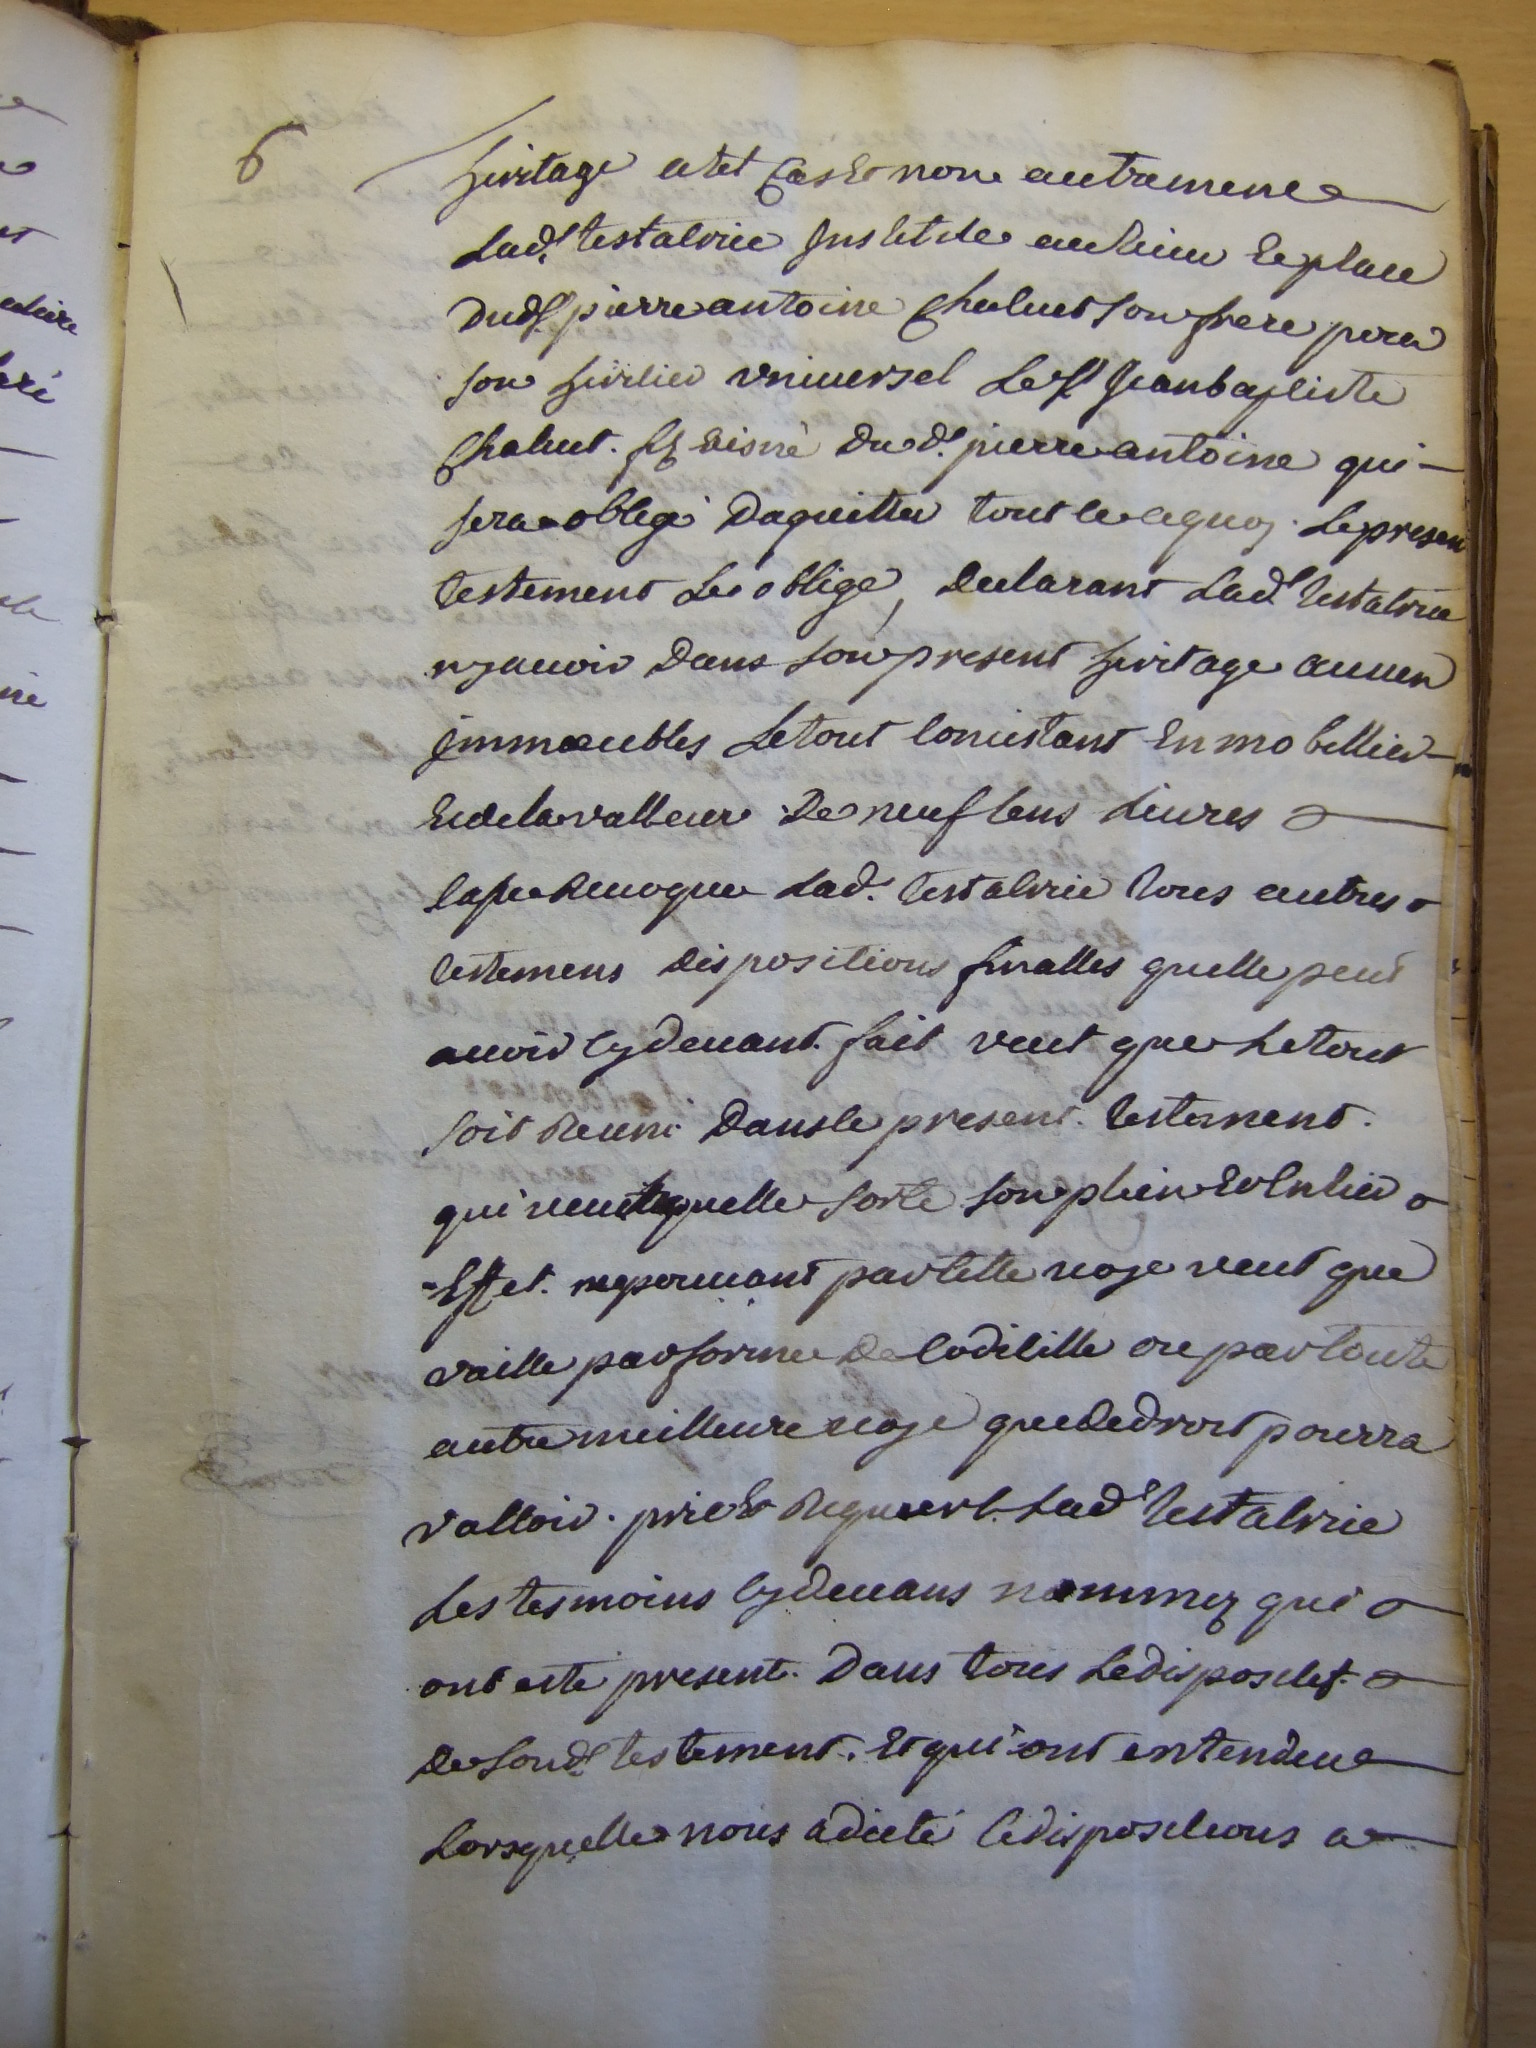 6
heritage a cet cas et non autrement
Lad.e testatrice Institue au lieu et place
Dud.t pierre antoine Chaluet son frere pour
son heritier universel Le sr Jean baptiste
Chaluet. fils aisné Du d.t pierre antoine qui
sera oblegé Daquitter tout ce a quoy. Le presen
testement Les oblige, Declarant Lad.e testatrice
ny avoir Dans son present heritage aucun
jmmoeubles Le tout concistant En mobellier
Et de la valleur De neuf cens Livres
Casse Revoque Lad.e testatrice tous autres
testemens dispositions finalles quelle peut
avoir cy devant. fait veut que Le tout
soit Reuni Dans le present. testement.
qui veut quelle sorte son plein Et Entier
Effet. ne pouvant par cette voye veut que
vaille par forme De Codicille ou par toute
autre meilleure voye que de droit pourra
valloir. prie Et Requiert. Lad.e testatrice
Les tesmoins cy devans nommez qui
ont esté present. Dans tous Le disposetif.
De sond.t testement. Et qui ont entendeu
Lorsquelle nous a dicté Ce dispositions a